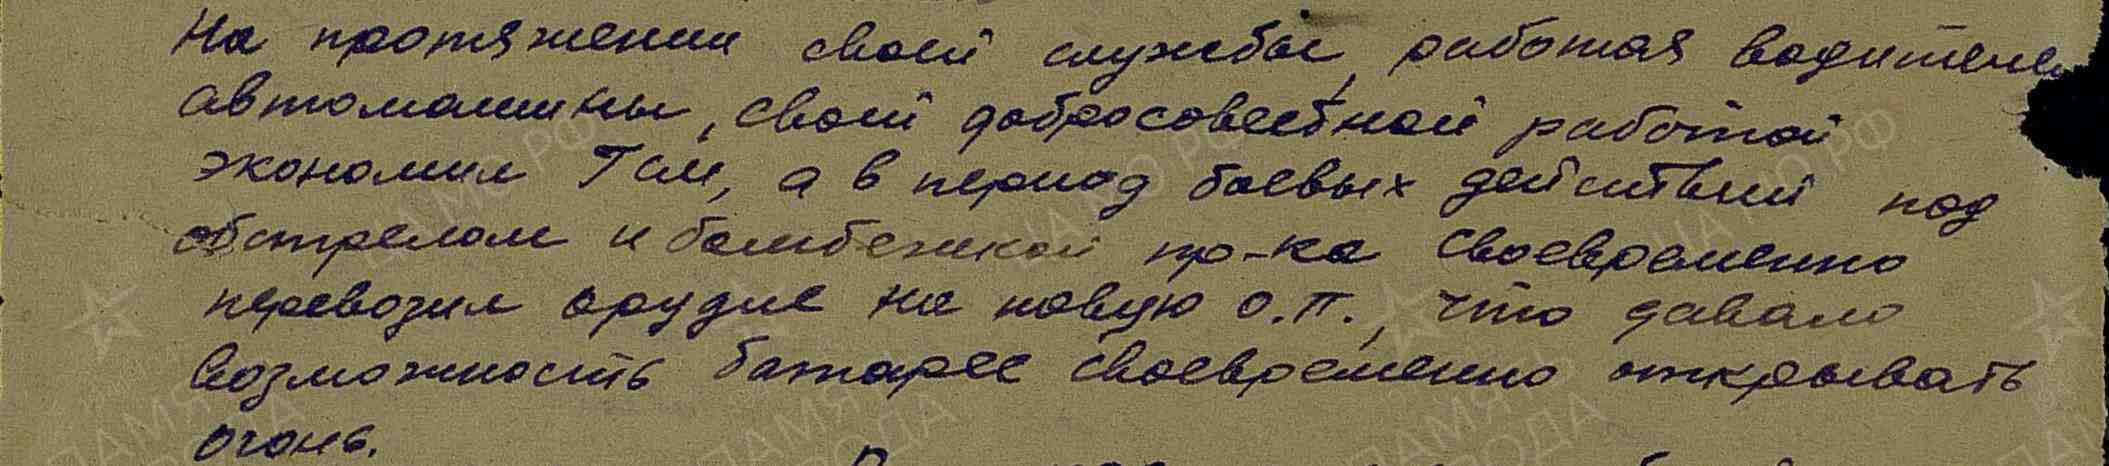 На протяжении своей службы, работая водителем
автомашины, своей добросовестной работой
экономил Гсм, а в период боевых действий под
обстрелом и бомбежкой пр-ка своевременно
перевозил орудие на новую о.п., что давало
возможность батарее своевременно открывать
огонь.